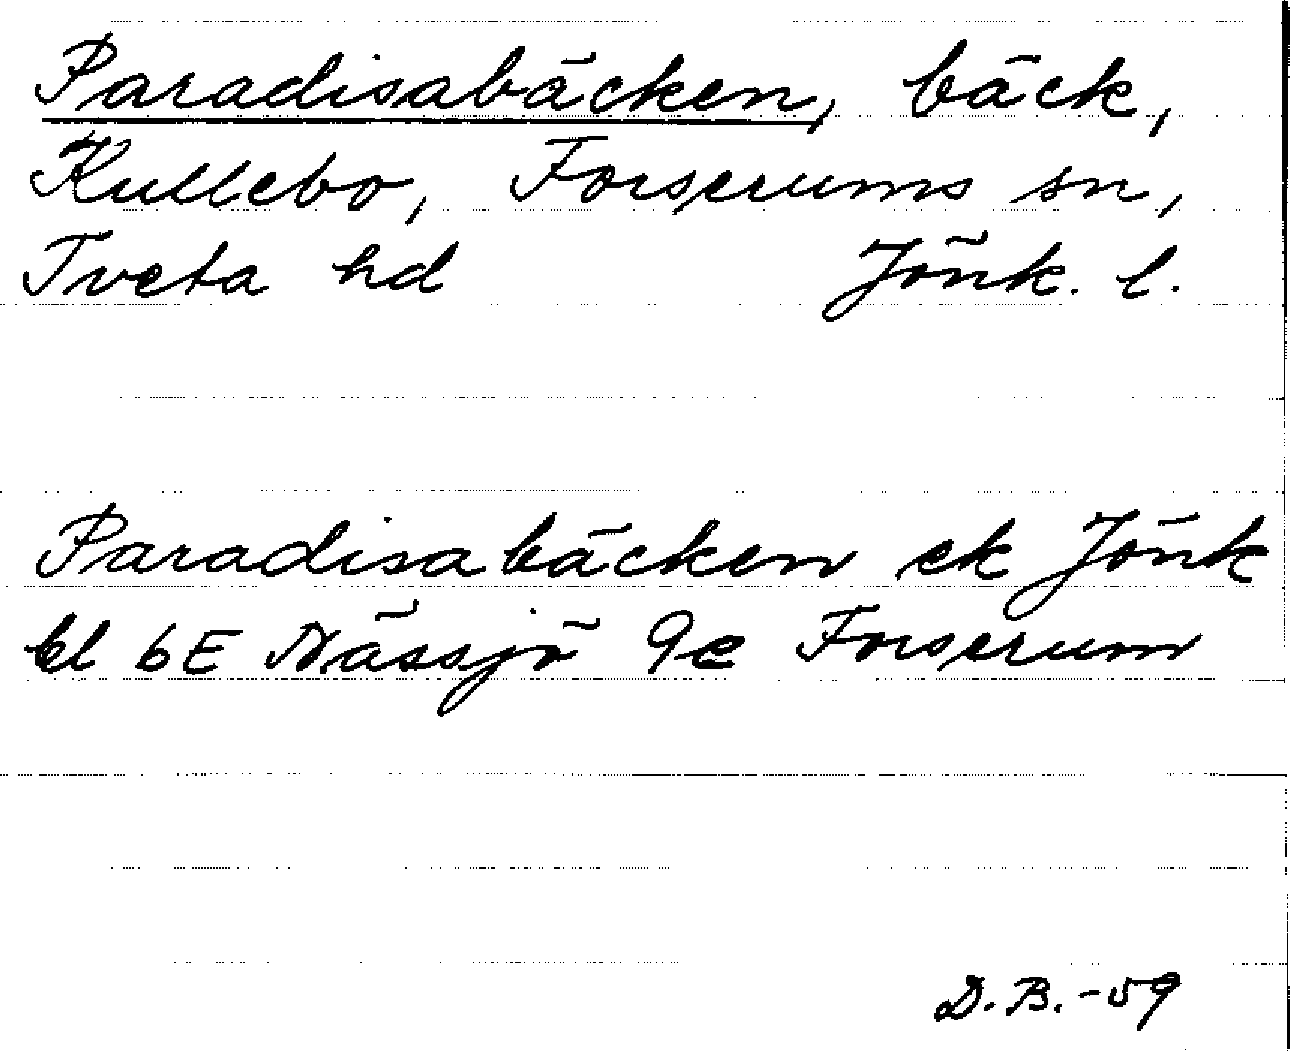 Paradisabäcken, bäck,
Kullebo, Forserums sn,
Tveta hd Jönk. l.
Paradisabäcken ek Jönk
bl 6E Nässjö 9e Forserum
D.B.-59